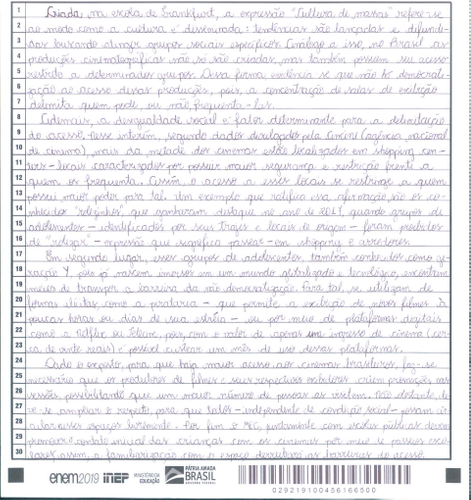 Criada, na escola de Frankfurt, a expressão "Cultura de massas" refere-se
ao modo como a cultura é disseminada: tendências são lançadas e difundi-
das buscando atingir grupos sociais específicos. Análogo a isso, no Brasil as
produções cinematográficas não só são criadas, mas também possuem seu acesso
restrito a determinados grupos. Dessa forma evidencia-se que não há democrati-
zação ao acesso dessas produções, pois, a concentração de salas de exibição
delimita quem pode, ou não, frequentá-las.
Ademais, a desigualdade social é fator determinante para a delimitação
do acesso. Nesse ínterim, segundo dados divulgados pela Ancine (agência nacional
de cinema), mais da metade dos cinemas estão localizados em shopping cen-
ters - locais caracterizados por possuir maior segurança e restrição frente a
quem os frequenta. Assim, o acesso a esses locais se restringe a quem
possui maior poder para tal. Um exemplo que ratifica essa afirmação são os co-
nhecidos "rolezinhos", que ganharam destaque no ano de, quando grupos de
adolescentes - identificados por seus trajes e locais de origem - foram proibidos
de "rolezar" - expressão que significa passear - em shoppings e arredores.
Em segundo lugar, esses grupos de adolescentes, também conhecidos como ge-
ração Y, pois já nascem imersos em um mundo globalizado e tecnológico, encontram
meios de transpor a barreira da não democratização. Para tal, se utilizam de
formas ilícitas como a pirataria - que permite a exibição de novos filmes à
poucas horas ou dias de sua estreia - ou por meio de plataformas digitais
como a Netflix ou, pois, com o valor de apenas um ingresso de cinema (cer-
ca de vinte reais) é possível custear um mês de uso dessas plataformas.
Dado o exposto, para que haja maior acesso aos cinemas brasileiros, faz-se
necessário que os produtores de filmes e seus respectivos exibidores criem promoções nas
sessões, possibilitando que um maior número de pessoas as visitem. Não obstante, de-
ve-se ampliar o respeito, para que todos - independente de condição social - possam cir-
cular nesses espaços livremente. Por fim o MEC, juntamente com escolas públicas, devem
promover o contato inicial das crianças com os cinemas por meio de passeios esco-
lares, assim, a familiarização com o espaço derrubará as barreiras do acesso.
enem2019 inep MINISTÉRIO DA EDUCAÇÃO PÁTRIA AMADA BRASIL
029219100456166500